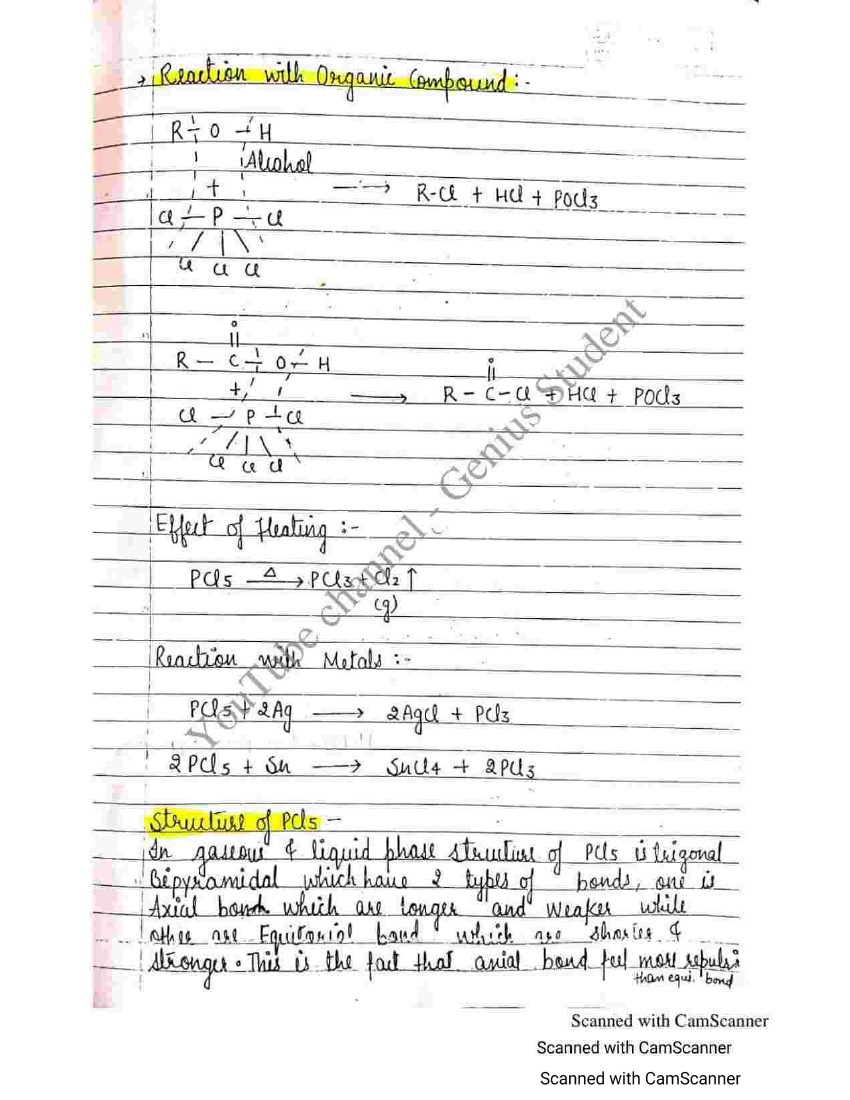 → Reaction with Organic Compound :-
R - O - H
Alcohol
+ → R-Cl + HCl + POCl3
Cl - P - Cl
Cl Cl Cl
O
R - C - O - H O
+ → R - C - Cl + HCl + POCl3
Cl - P - Cl
Cl Cl Cl
Effect of Heating :-
PCl5 —Δ→ PCl3 + Cl2 ↑
(g)
Reaction with Metals :-
PCl5 + 2Ag → 2AgCl + PCl3
2PCl5 + Sn → SnCl4 + 2PCl3
Structure of PCl5 -
In gaseous & liquid phase structure of PCl5 is trigonal
Bipyramidal which have 2 types of bonds, one is
Axial bond which are longer and weaker while
other are Equitorial bond which are shorter &
stronger. This is the fact that axial bond feel more repulsi
than equi. bond
YouTube channel - Genius Student
Scanned with CamScanner
Scanned with CamScanner
Scanned with CamScanner